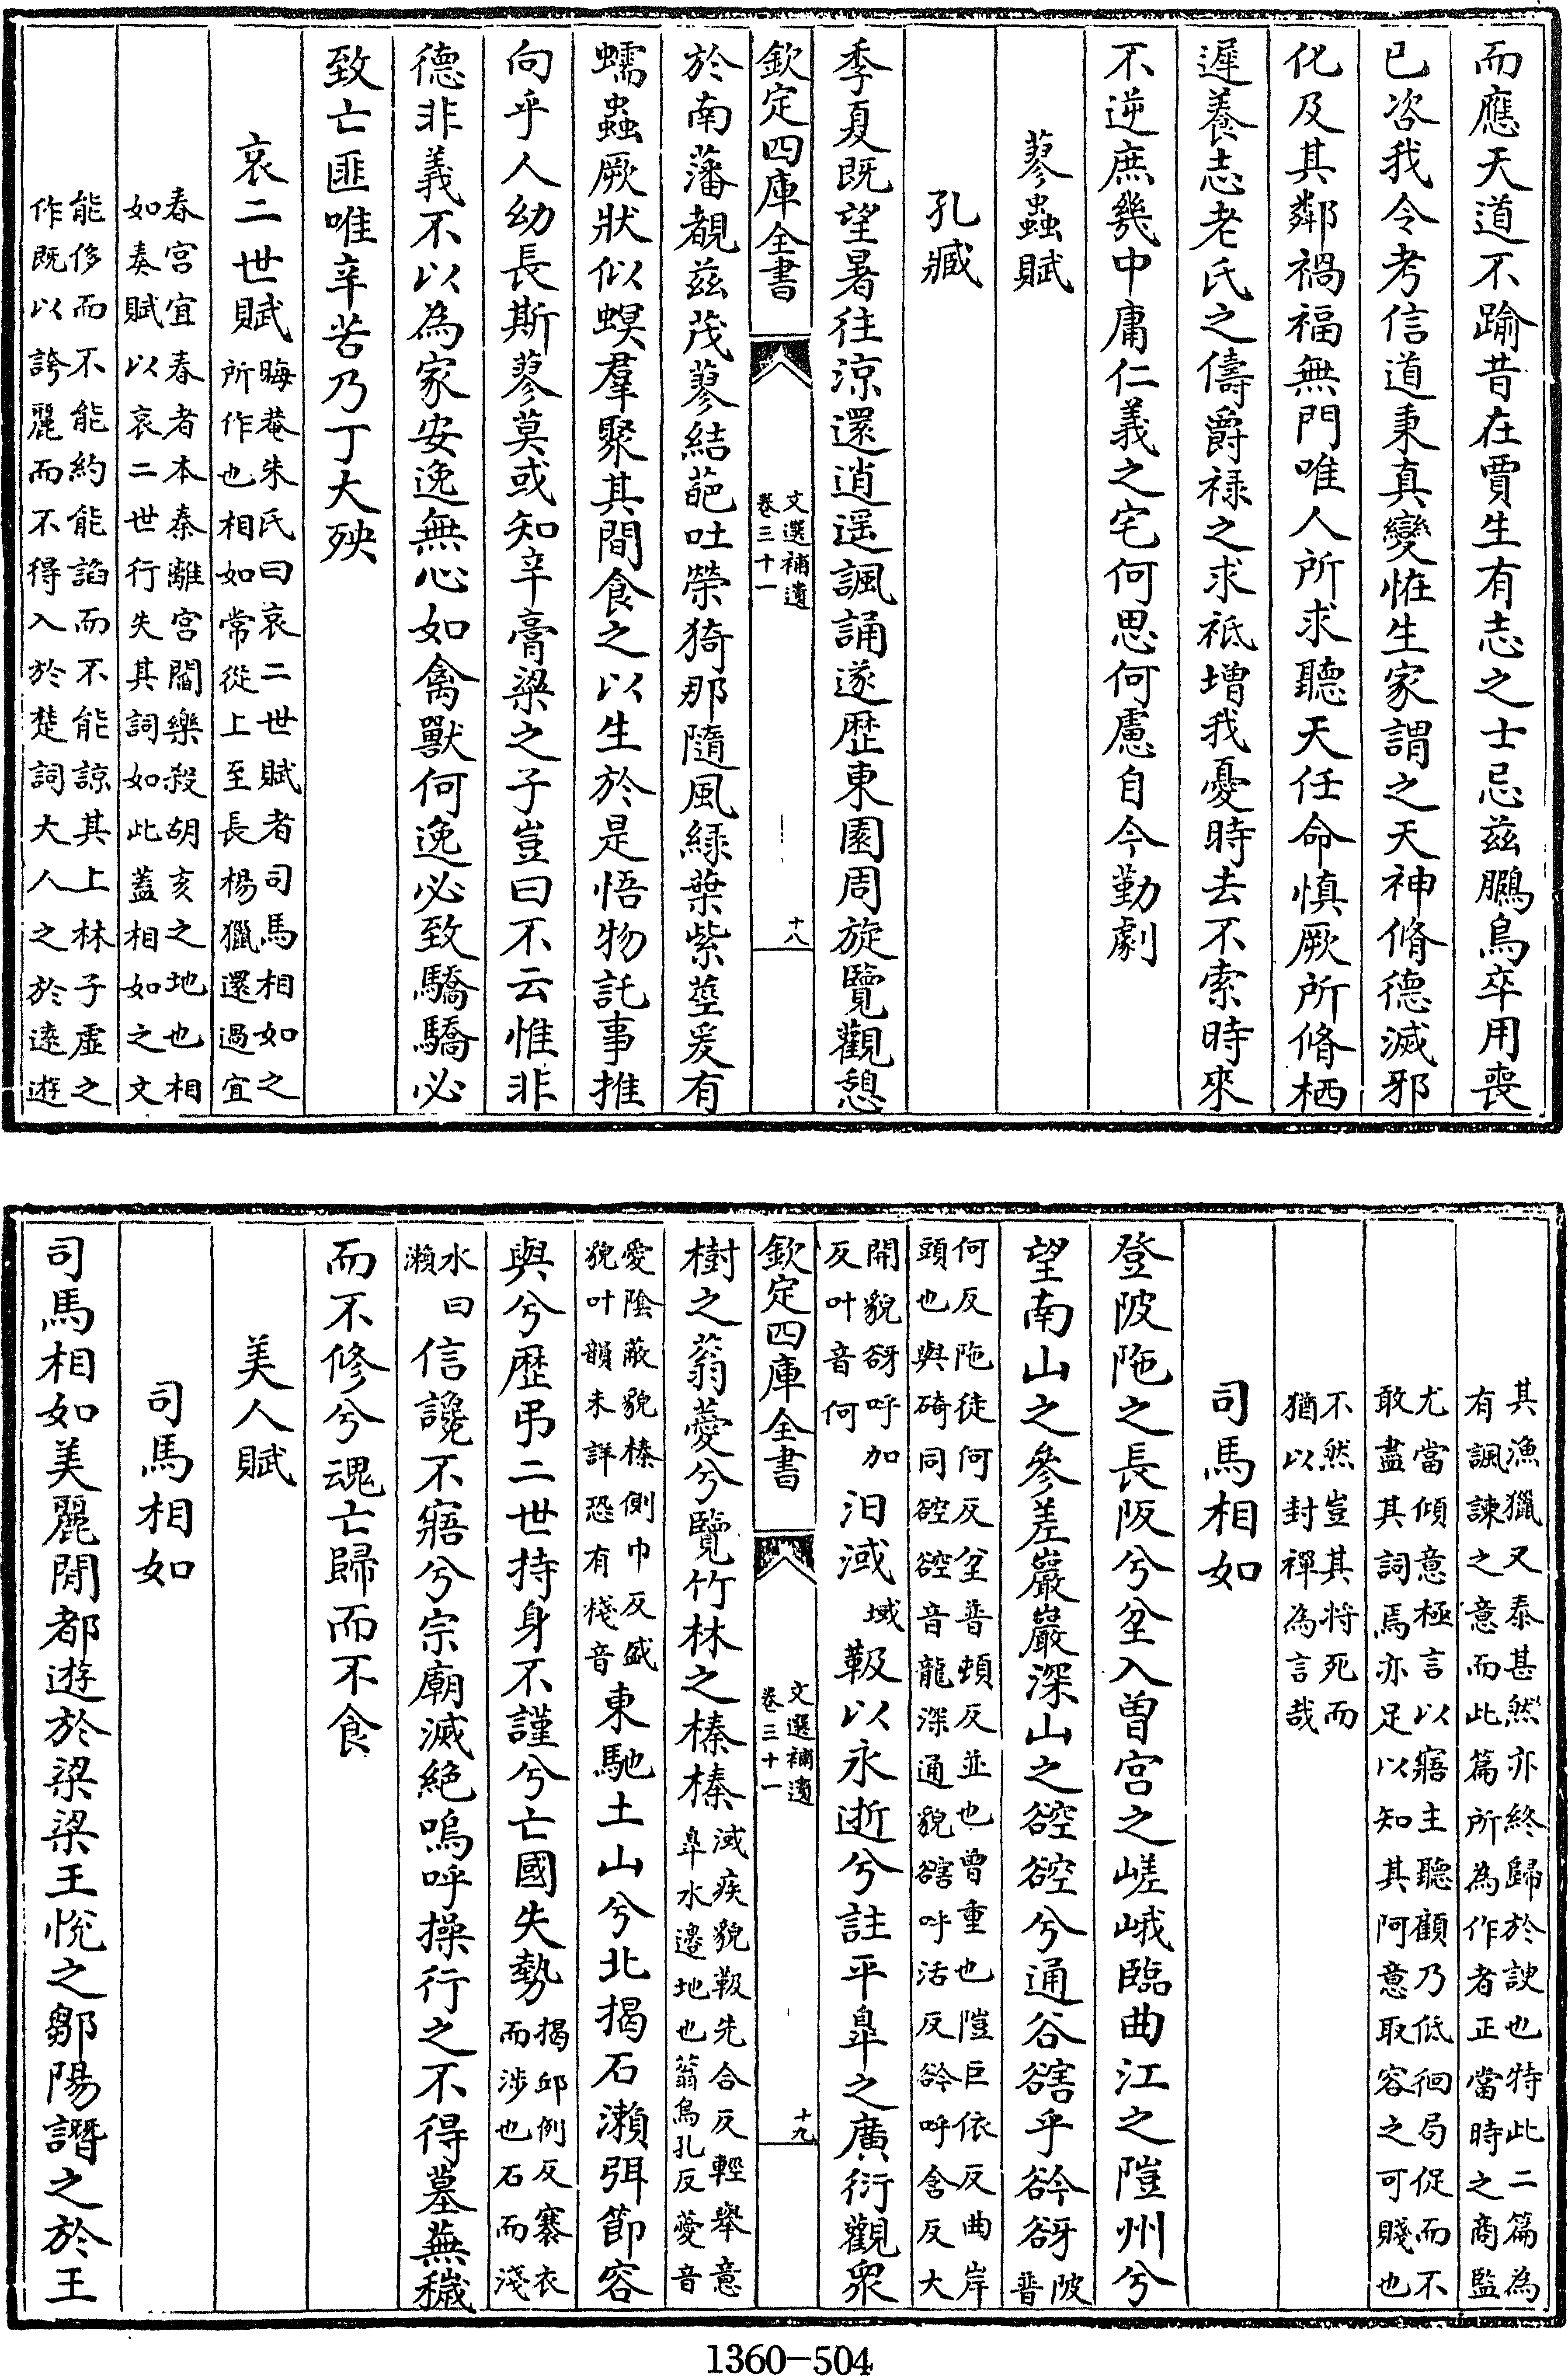 而應天道不踰昔在賈生有志之士忌茲鵩鳥卒用喪
已咨我令考信道秉真變恠生家謂之天神脩德滅邪
化及其鄰禍福無門唯人所求聽天任命慎厥所脩栖
遲養志老氏之儔爵祿之求祗增我憂時去不索時來
不逆庶幾中庸仁義之宅何思何慮自今勤劇
蓼蟲賦
孔臧
季夏既望暑往涼還逍遥諷誦遂歷東園周旋覽觀憩
欽定四庫全書
文選補遺
卷三十一
十八
於南藩覩茲茂蓼結葩吐榮猗那隨風綠葉紫莖爰有
蠕蟲厥狀似螟羣聚其間食之以生於是悟物託事推
向乎人幼長斯蓼莫或知辛膏粱之子豈曰不云惟非
德非義不以為家安逸無心如禽獸何逸必致驕驕必
致亡匪唯辛苦乃丁大殃
哀二世賦
晦菴朱氏曰哀二世賦者司馬相如之
所作也相如常從上至長楊獵還過宜
春宮宜春者本秦離宮閻樂殺胡亥之地也相
如奏賦以哀二世行失其詞如此蓋相如之文
能侈而不能約能諂而不能諒其上林子虛之
作既以誇麗而不得入於楚詞大人之於遠遊
其漁獵又泰甚然亦終歸於諛也特此二篇為
有諷諫之意而此篇所為作者正當時之商監
尤當傾意極言以寤主聽顧乃低徊局促而不
敢盡其詞焉亦足以知其阿意取容之可賤也
不然豈其將死而
猶以封禪為言哉
司馬相如
登陂陁之長阪兮坌入曽宮之嵯峨臨曲江之隑州兮
望南山之參差巖巖深山之谾谾兮通谷豁乎谽谺
陂
普
何反陁徒何反坌普頓反並也曽重也隑巨依反曲岸
頭也與碕同谾谾音龍深通貌豁呼活反谽呼含反大
開貌谺呼加
反叶音何
汩淢
域
靸以永逝兮註平臯之廣衍觀衆
欽定四庫全書
文選補遺
卷三十一
十九
樹之蓊薆兮覽竹林之榛榛
淢疾貌靸先合反輕舉意
臯水邊地也蓊烏孔反薆音
愛陰蔽貌榛側巾反盛
貌叶韻未詳恐有棧音
東馳土山兮北揭石瀨弭節容
與兮歷弔二世持身不謹兮亡國失勢
揭邱例反褰衣
而涉也石而淺
水曰
瀨
信讒不寤兮宗廟滅絶嗚呼操行之不得墓蕪穢
而不修兮魂亡歸而不食
美人賦
司馬相如
司馬相如美麗閒都遊於梁梁王悅之鄒陽譖之於王
1360-504